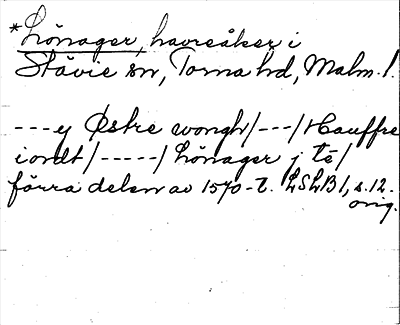 *Hönager, havreåker i
Stävie sn, Torna hd, Malm. l.
---y Østre wongh/---/Hauffre
iordt/-----/hönager j té/
förra delen av 1570-t. LSLB1, s.12.
orig.